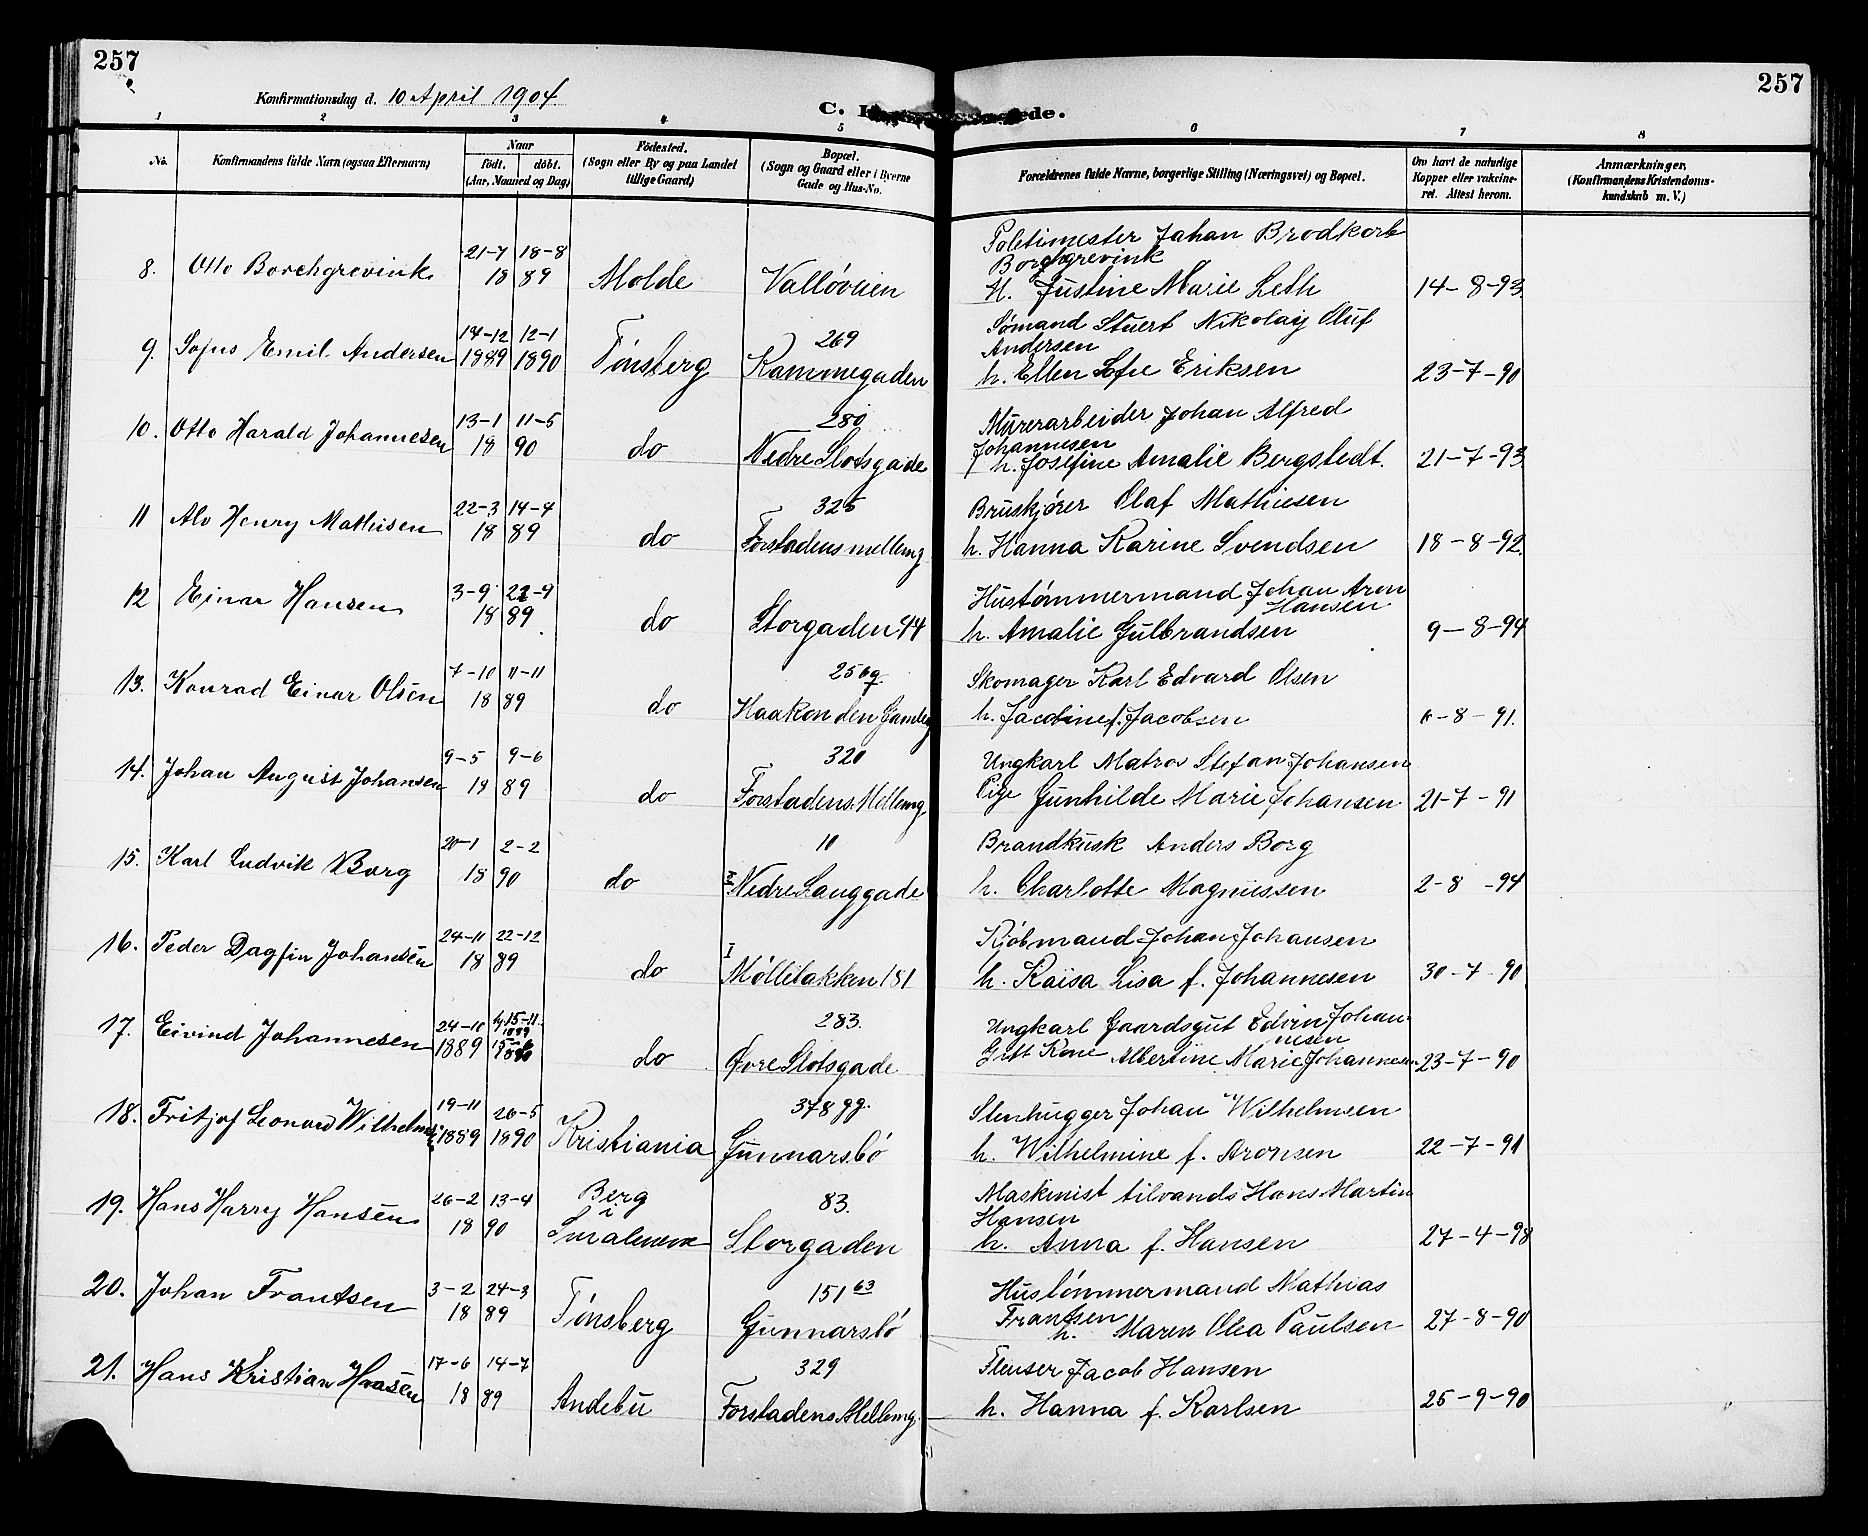 257
257
Konfirmationsdag d. 10 April 1904
C.
1 2 3 4 5 6 7 8
No. Konfirmandens fulde Navn (ogsaa Efternavn) Naar født. døbt. (Aar, Maaned og Dag) Fødested. (Sogn eller By og paa Landet tillige Gaard) Bopæl. (Sogn og Gaard eller i Byerne Gade og Hus-No. Forældrenes fulde Navne, borgerlige Stilling (Næringsvei) og Bopæl. Om havt de naturlige Kopper eller vaksineret. Attest herom. Anmærkninger. (Konfirmandens Kristendomskundskab m. V.)
21-7 18-8 Politimester Johan Brodkorb
Borchgrevink
8. Otto Borchgrevink 18 89 Molde Valløveien H. Justine Marie Leth 14-8-93
14-12 12-1 269 Sømand Stuert Nikolaij Oluf
Andersen
9. Sofus Emil Andersen 1889 1890 Tønsberg Kammegaden h. Ellen Sofie Eriksen 23-7-90
13-1 11-5 280 Murerarbeider Johan Alfred
Johannesen
10. Otto Harald Johannesen 18 90 do Nedre Slotsgade h. Josefine Amalie Bergstedt. 21-7-93
22-3 14-4 325 Bruskjører Olaf Mathiesen
11 Alv Henry Mathisen 18 89 do Forstadens mellemg h. Hanna Karine Svendsen 18-8-92
3-9 22-9 Hustømmermand Johan Aron
Hansen
12 Einar Hansen 18 89 do Storgaden 44 h. Amalie Gulbrandsen 9-8-94
7-10 11-11 256g Skomager Karl Edvard Olsen
13. Konrad Einar Olsen 18 89 do Haakon den Gamleg h. Jacobine f. Jacobsen 6-8-91.
9-5 9-6 320 Ungkarl Matros Stefan Johansen
14. Johan August Johansen 18 89 do Forstadens Mellemg Pige Gunhilde Marie Johansen 21-7-91
20-1 2-2 10 Brandkusk Anders Borg
15. Karl Ludvik Borg 18 90 do Nedre Langgade h. Charlotte Magnussen 2-8-94
24-11 22-12 I Kjøbmand Johan Johansen
16. Peder Dagfin Johansen 18 89 do Møllebakken 181 h. Kaisa Lisa f. Johannesen 30-7-90
24-10 15-11 283. Ungkarl Gaardsgut Edvin Johan-
nesen
17. Eivind Johannesen 1889 do Øvre Slotsgade Gift Kone Albertine Marie Johannesen 23-7-90
19-11 26-5 378 gg. Stenhugger Johan Wilhelmsen
18. Fritjof Leonard Wilhelmsen 1889 1890 Kristiania Gunnarsbø h. Wilhelmine f. Aronsen 22-7-91
26-2 13-4 Berg 83. Maskinist tilvands Hans Martin
i Hansen
19. Hans Harry Hansen 18 90 Smalenene Storgaden h. Anna f. Hansen 27-4-98
3-2 24-3 151 63 Hustømmermand Mathias
Frantsen
20. Johan Frantsen 18 89 Tønsberg Gunnarsbø h. Maren Olea Paulsen 27-8-90
17-6 14-7 329 Flenser Jacob Hansen
21. Hans Kristian Hansen 18 89 Andebu Forstadens Mellemg. h. Hanna f. Karlsen 25-9-90